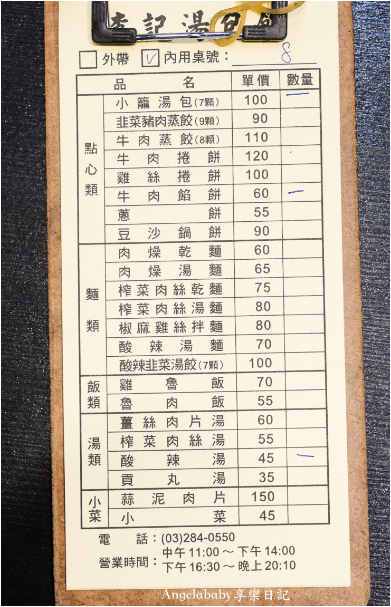 李記湯包
外帶 ✓ 內用桌號: 8
品名 單價 數量
點心類
小籠湯包(7顆) 100 一
韭菜豬肉蒸餃(9顆) 90
牛肉蒸餃(8顆) 110
牛肉捲餅 120
雞絲捲餅 100
牛肉餡餅 60 一
蔥餅 55
豆沙鍋餅 90
麵類
肉燥乾麵 60
肉燥湯麵 65
榨菜肉絲乾麵 75
榨菜肉絲湯麵 80
椒麻雞絲拌麵 80
酸辣湯麵 70
酸辣韭菜湯餃(7顆) 100
飯類
雞魯飯 70
魯肉飯 55
湯類
薑絲肉片湯 60
榨菜肉絲湯 55
酸辣湯 45 一
貢丸湯 35
小菜
蒜泥肉片 150
小菜 45
電話:(03)284-0550
營業時間:中午11:00～下午14:00
下午16:30～晚上20:10
Angelababy享樂日記